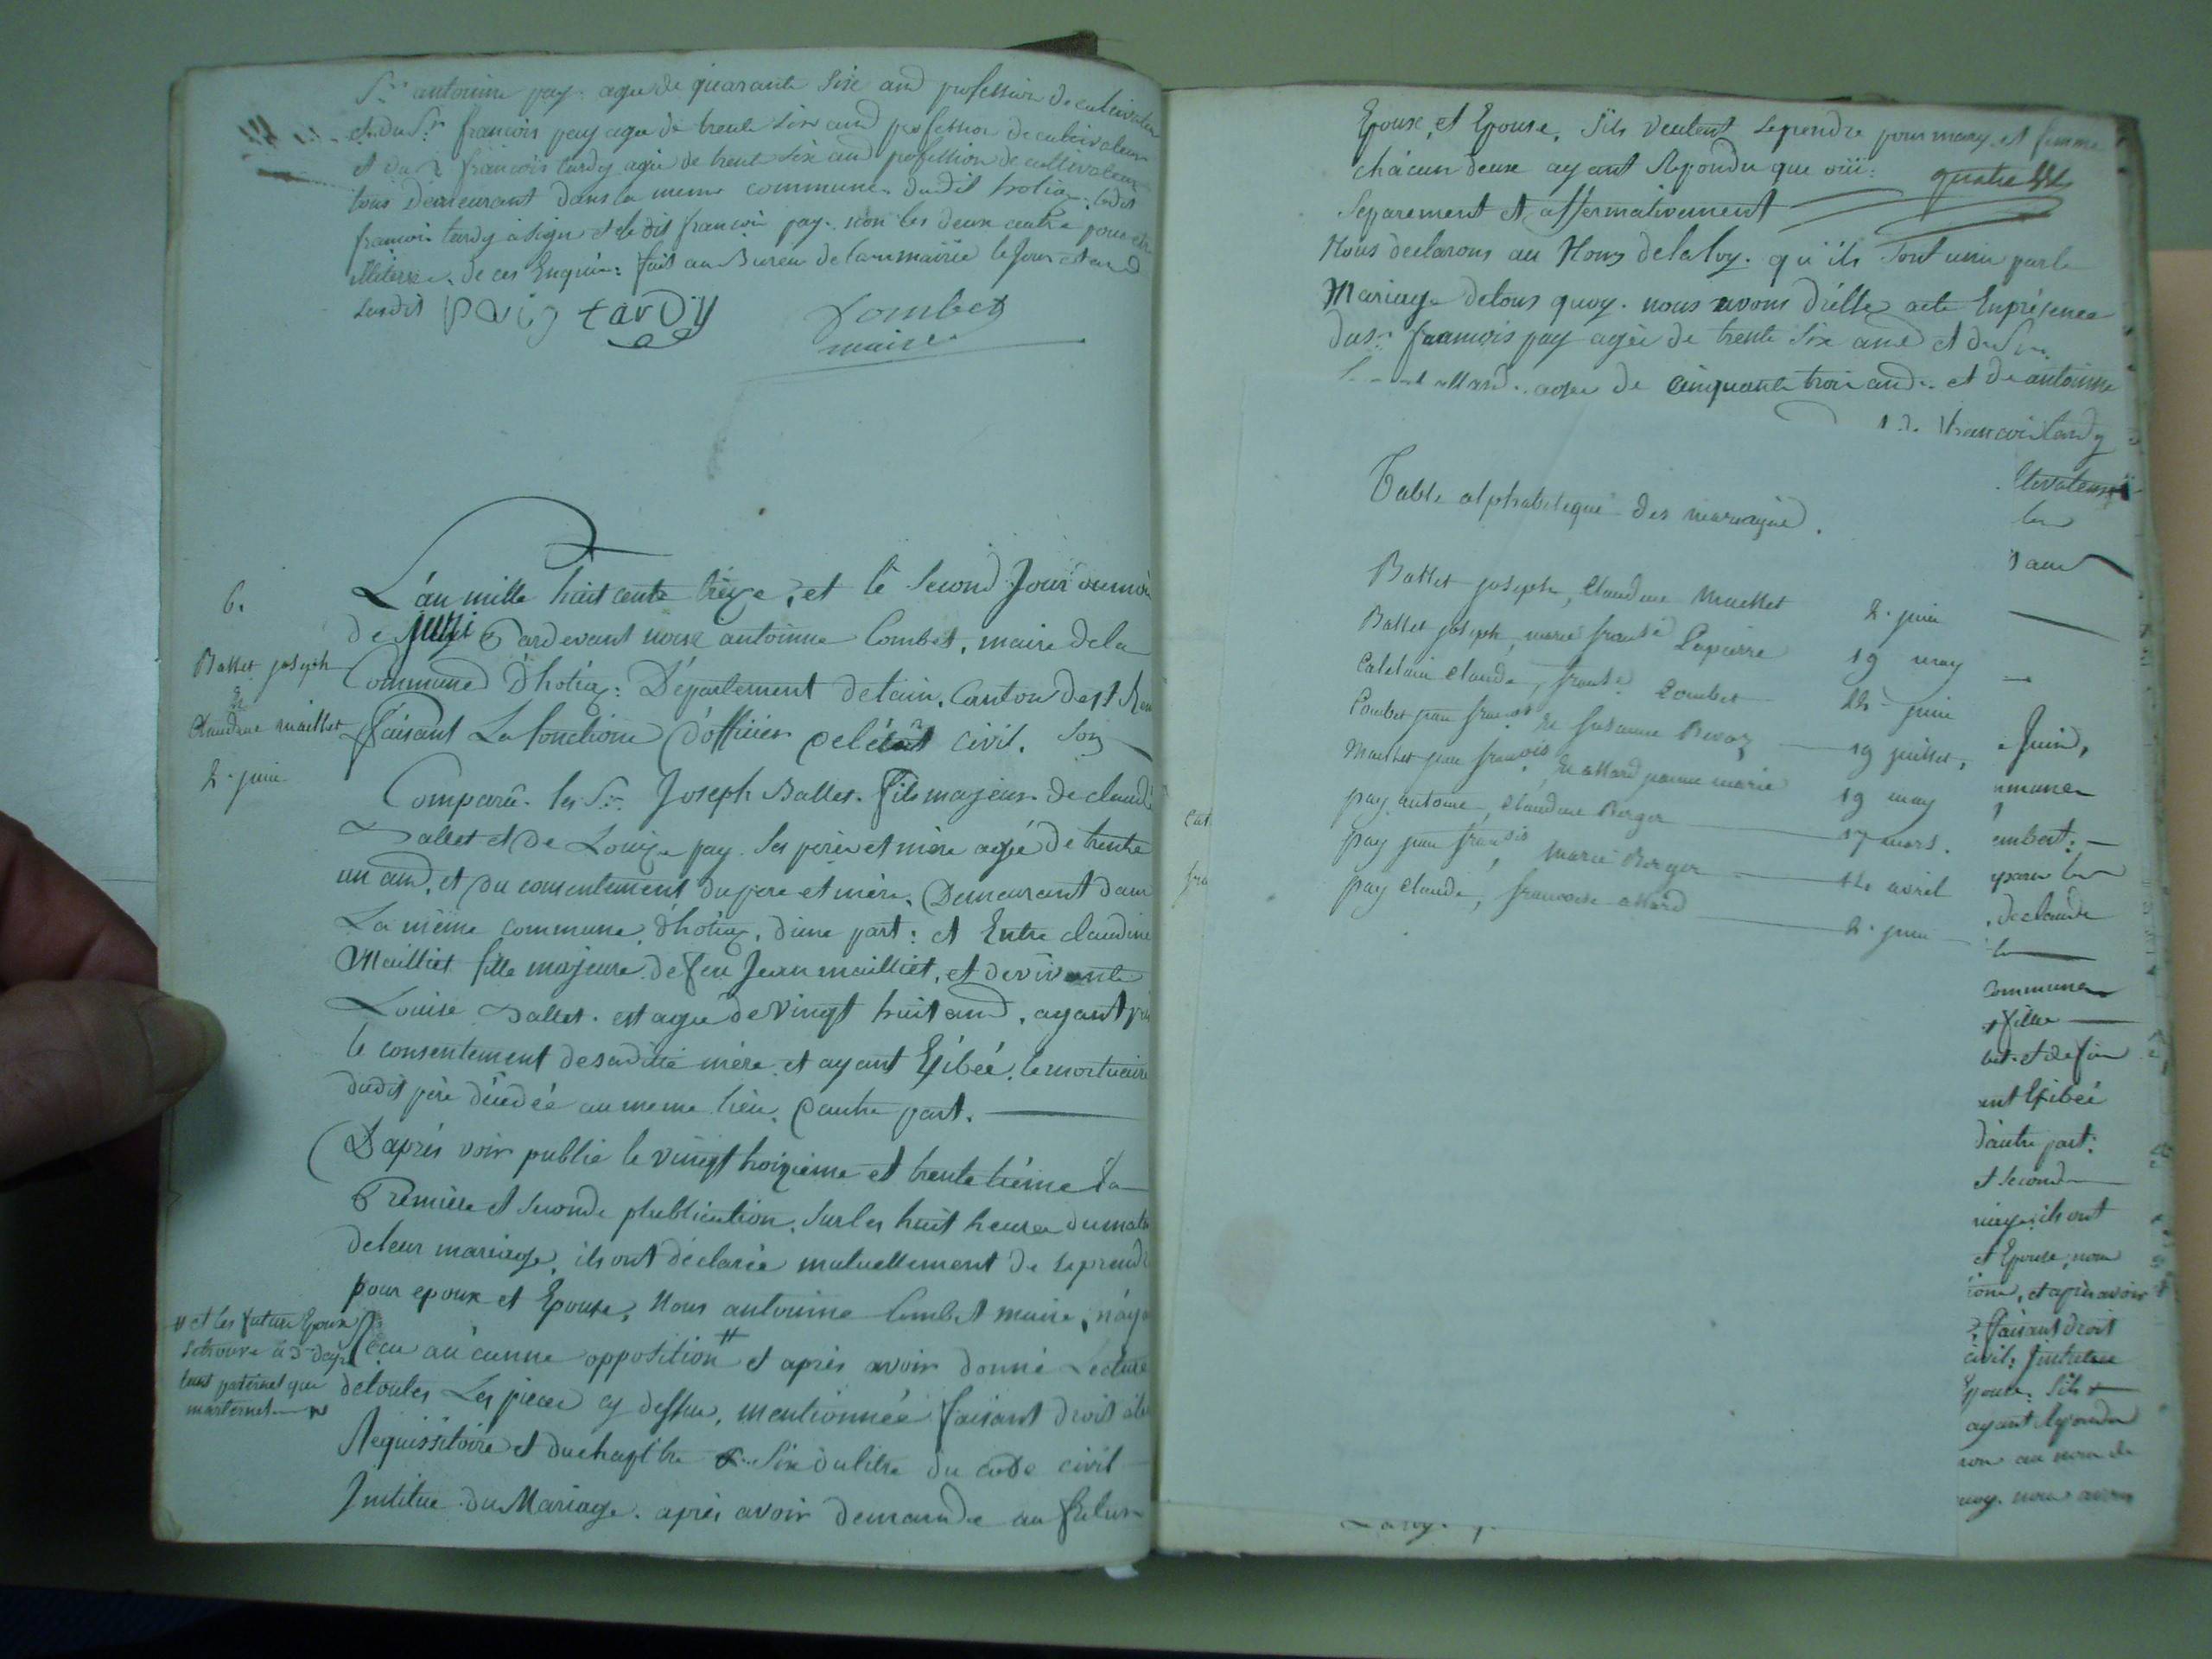 Sr antoinne pay. agée de quarante Six and profession de cultivateur
et du Sr francois pay agée de trente Six and profession de cultivateur
et du Sr francois tardy agée de trente Six and profession de cultivateur
tous Demeurant dans la meme commune dudit hotiax. ledit
francois tardy a Signé et ledit francois pay. non les deux autre pour etre
illiterée. de ces Enquérir: fait au Bureu de la mairiie le Jour et and
Susdit pay tardy Combet
maire
6.
Ballet joseph
&
Claudine maillet
2. juin
L'an mille huit cente treize, et le Second Jour du moi
de juin Pardevant nous antoinne Combet, maire de la
Commune D'hotiax: Département de lain. Canton de st
Faisant La fonctione D'officier de létat civil. Son
Comparu. les Sr Joseph Ballet. fils majeur de claude
Ballet et de Louize pay. Ses père et mère agée de trente
un and, et du consentement du pere et mère. Demeurant dans
La mème commune d'hotiax, d'une part: et Entre claudine
Mailliet fille majeure de feu Jean mailliet, et de vivante
Louise Ballet. est agée de vingt huit and, ayant pri
le consentement de sa ditte mère et ayant Exibéé. le mortuaire
dudit père décédéé au meme lieu. D'autre part.
D'aprés voir publié le vingt troizième et trente tième La
Premiere et seconde plublication. Sur les huit heures du matin
de leur mariage, ils ont déclarée mutuellement de se prendre
pour epoux et Epouse, Nous antoinne Combet maire, n'aya
reçu aûcunne opposition # et aprés avoir donné Lecture
de toutes Les pieces cy dessus, mentionnéé faisant droit à la
Requissitoire et du chapitre Six du titre du code civil
Institue du Mariage. après avoir demandé au futur
# et lés future Epoux
tant paternel que
marternel
Epoux, et Epouse, S'ils veulent se prendre pour mary et femme
chacun deux ayant Repondu que oüi:
Séparement et affermativement
Nous declarons au Nom de la loy. qu'ils Sont unis par le
Mariage de tous quoy. nous avons dréssé acte En présence
du Sr francois pay agée de trente Six and et du Sr
allard. agée de cinquante trois and. et de antoinne
francois tardy
Table alphabétique des mariages.
Ballet joseph, Claudine Maillet 2. juin
Ballet joseph, marie franse Lapierre 19 may
Catelain Claude, franse Combet 22 juin
Combet jean françois & Susanne Revoz 19 juillet,
Maillet jean françois & allard jeanne marie 19 may
pay antoine, Claudine Berger 17 mars.
pay jean françois, Marie Berger 12 avril
pay Claude, francoise allard 2. juin
Juin,
mmune
embert:
de claude
commune
fille
bet. et de feu
ant Exibéé
d'autre part:
et second
riage, ils ont
et Epouse, nous
ione, et après avoir
faisant droit
civil: Institue
Epouse. S'ils
ayant Repondu
ron au nom de
uoy. nous avons